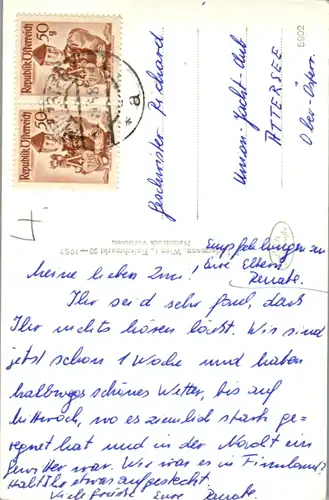 Republik Österreich
50 g
Republik Österreich
50 g
a
5902
Geschwister Richard
Union-Yacht-Club
ATTERSEE
Ober-Österr.
Wien I., Fleischmarkt 20 — 1957
Nachdruck verboten
4.
Empfehlungen an
Eure Eltern
Renate.
Meine lieben Zwei!
Ihr seid sehr faul, dass
Ihr nichts hören lässt. Wir sind
jetzt schon 1 Woche und haben
halbwegs schönes Wetter, bis auf
Mittwoch, wo es ziemlich stark ge-
regnet hat und in der Nacht ein
Gewitter war. Wie war es in Finnland?
Habt Ihr etwas aufgesteckt.
Viele Grüße Eure Renate.